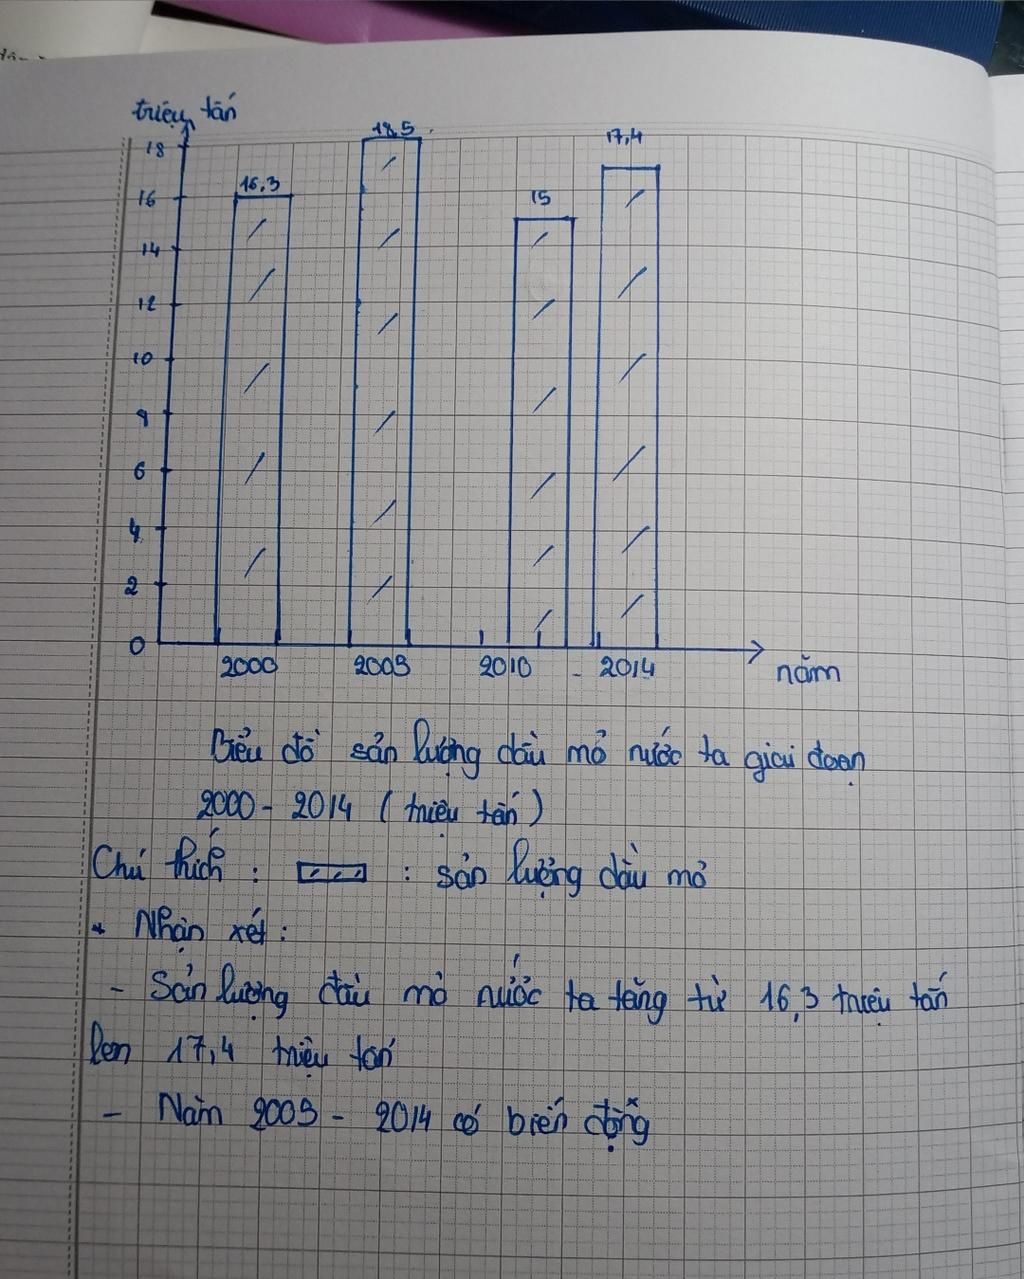 triệu tấn
18,5
17,4
18
16,3
16
15
14
12
10
8
6
4
2
0
2000 2005 2010 2014 năm
Biểu đồ sản lượng dầu mỏ nước ta giai đoạn
2000 - 2014 (triệu tấn)
Chú thích : : sản lượng dầu mỏ
* Nhận xét :
- Sản lượng dầu mỏ nước ta tăng từ 16,3 triệu tấn
lên 17,4 triệu tấn
- Năm 2005 - 2014 có biến động